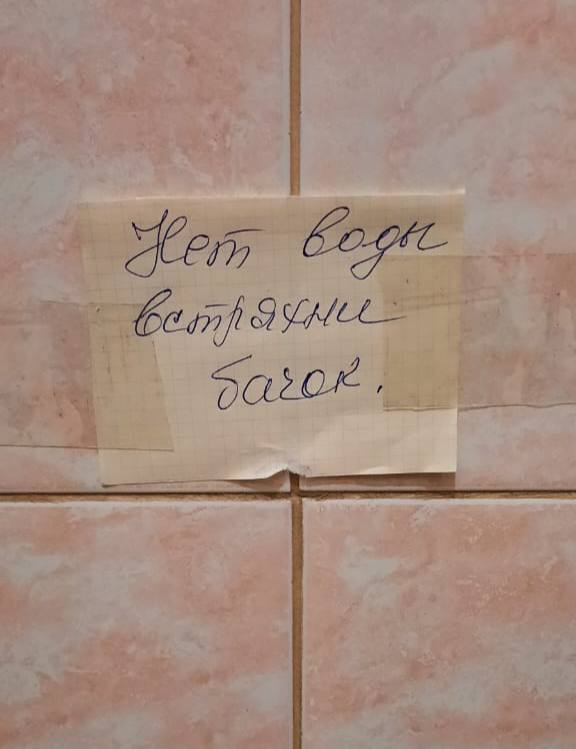 Нет воды
встряхни
бачок.